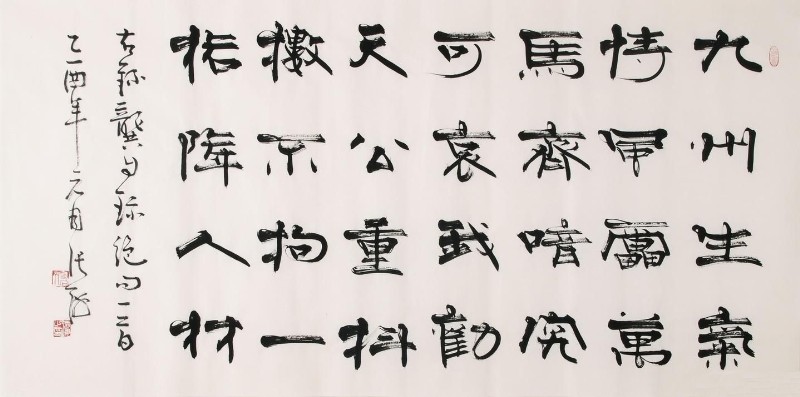 九州生氣
恃風雷萬
馬齊喑究
可哀我勸
天公重抖
擻不拘一
格降人材
右錄龔自珍絕句一首
乙酉年元月張